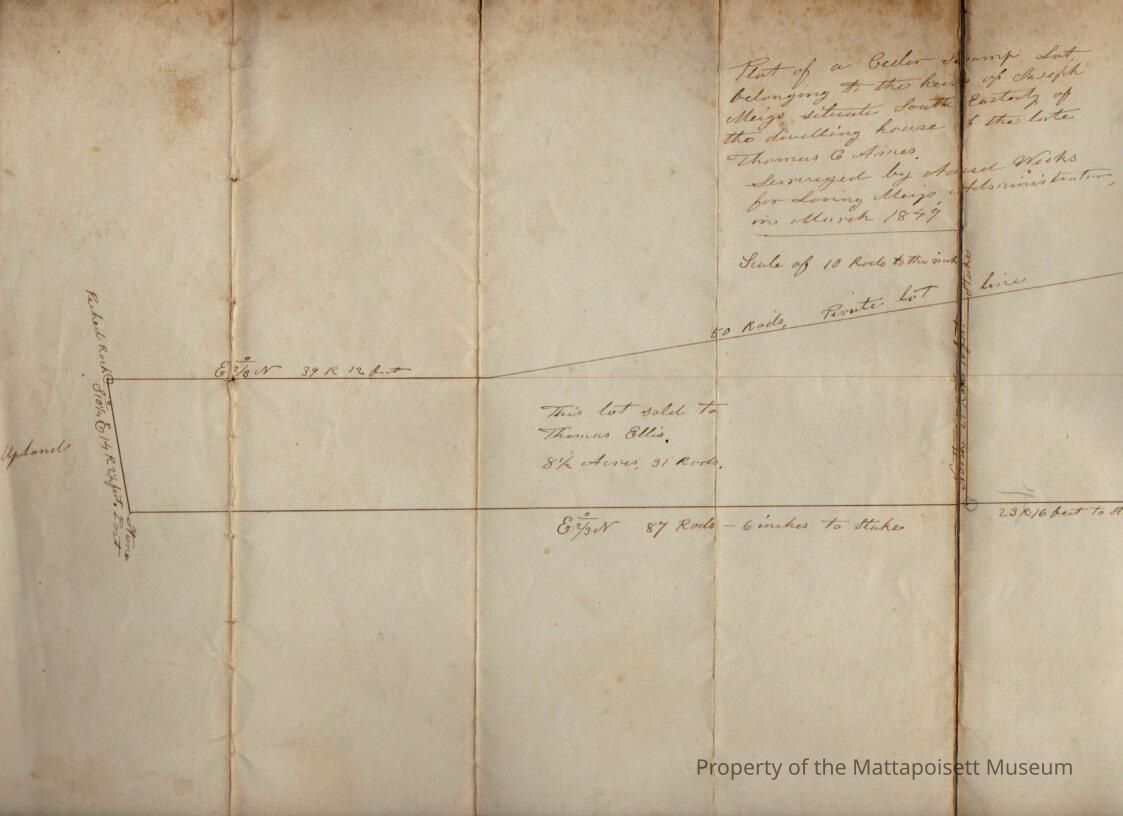 Plat of a Ceder Swamp Lot
belonging to the heirs of Joseph
Meigs, situate South Easterly of
the dwelling house of the late
Thomas C Ames.
Surveyed by Ansel Weeks
for Loring Meigs Administrator,
in March 1849
Scale of 10 Rods to the inch
50 Rods, Pirate Lot line
E 2°/3 N 39 R 12 feet
Stake
Rock
Upland
This lot sold to
Thomas Ellis.
8 1/2 Acres, 31 Rods.
Stone
E 2°/3 N 87 Rods - 6 inches to Stake
23 R 16 feet to
Property of the Mattapoisett Museum